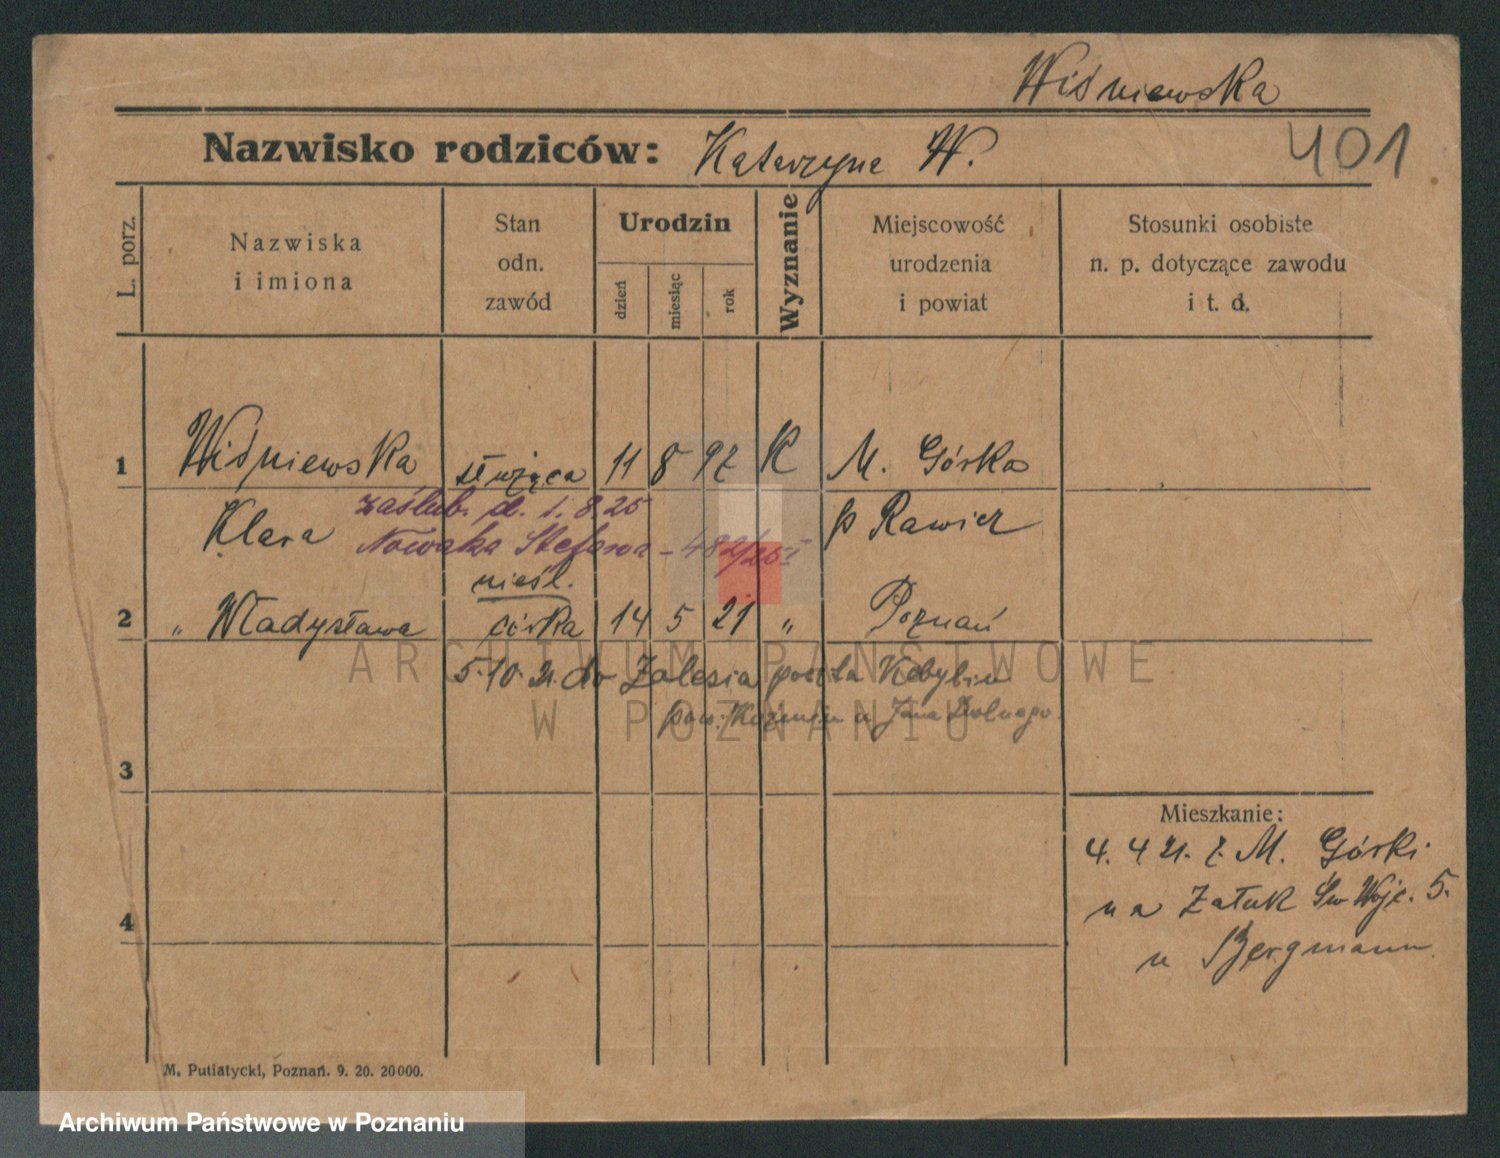 Wiśniewska
Nazwisko rodziców: Katarzyna W.
401
L. porz.
Nazwiska
i imiona
Stan
odn.
zawód
Urodzin
dzień
miesiąc
rok
Wyznanie
Miejscowość
urodzenia
i powiat
Stosunki osobiste
n. p. dotyczące zawodu
i t. d.
1 Wiśniewska służąca 11 8 97 K M. Górka
zaślub. d. 1. 8. 25
Klara p Rawicz
Nowaka Stefana - 482/25 I
nieśl.
2 " Władysława córka 14 5 21 " Poznań
5. 10. 21. do Zalesia poczta Kobylin
pow. Koźmin u Jana Dolnego
3
Mieszkanie:
4. 4 21. z M. Górki
na Św Wojc. 5.
4
u Bergmann
M. Putiatycki, Poznań. 9. 20. 20000.
ARCHIWUM PAŃSTWOWE
W POZNANIU
Archiwum Państwowe w Poznaniu